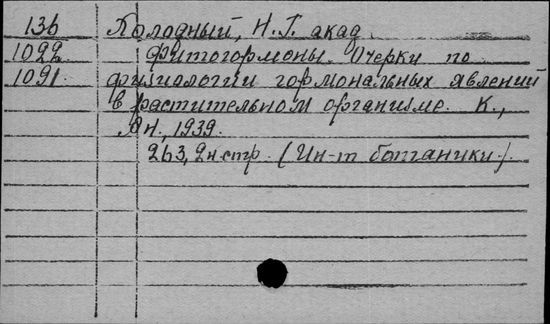 136 Холодный, Н.Г. акад.
1022 Фитогормоны. Очерки по
1091 физиологии гормональных явлений
в растительном организме. К.,
АН., 1939.
263, 2н. стр. (Ин-т ботаники.).